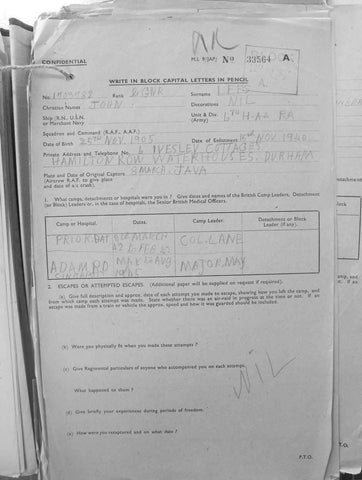 NR
CONFIDENTIAL
M.I. 9/JAP/ No 33564 A
WRITE IN BLOCK CAPITAL LETTERS IN PENCIL
No. Rank L/BNR Surname LEES
Christian Names JOHN Decorations NIL
Ship (R.N., U.S.N. or Merchant Navy) Unit & Div (Army) H.AA RA
Squadron and Command (R.A.F., A.A.F.)
Date of Birth 25TH NOV 1905 Date of Enlistment NOV 1940
Private Address and Telephone No. 6 IVESLEY COTTAGES
HAMILTON ROW WATERHOUSES. DURHAM
Place and Date of Original Capture 8 MARCH. JAVA
(Aircrew R.A.F. to give place and date of a/c crash).
1. What camps, detachments or hospitals were you in? Give dates and names of the British Camp Leaders, Detachment (or Block) Leaders or, in the case of hospitals, the Senior British Medical Officers.
Camp or Hospital. Dates. Camp Leader. Detachment or Block Leader (if any).
MARCH COL. LANE
AUG MAJOR. MAY
1945
2. ESCAPES OR ATTEMPTED ESCAPES. (Additional paper will be supplied on request if required).
(a) Give full description and approx. date of each attempt you made to escape, showing how you left the camp, and from which camp each attempt was made. State whether there was an air-raid in progress at the time or not. If an escape was made from a train or vehicle the approx. speed and how it was guarded should be included.
(b) Were you physically fit when you made these attempts ?
(c) Give Regimental particulars of anyone who accompanied you on each attempt.
What happened to them ?
NIL
(d) Give briefly your experiences during periods of freedom.
(e) How were you recaptured and on what date ?
P.T.O.